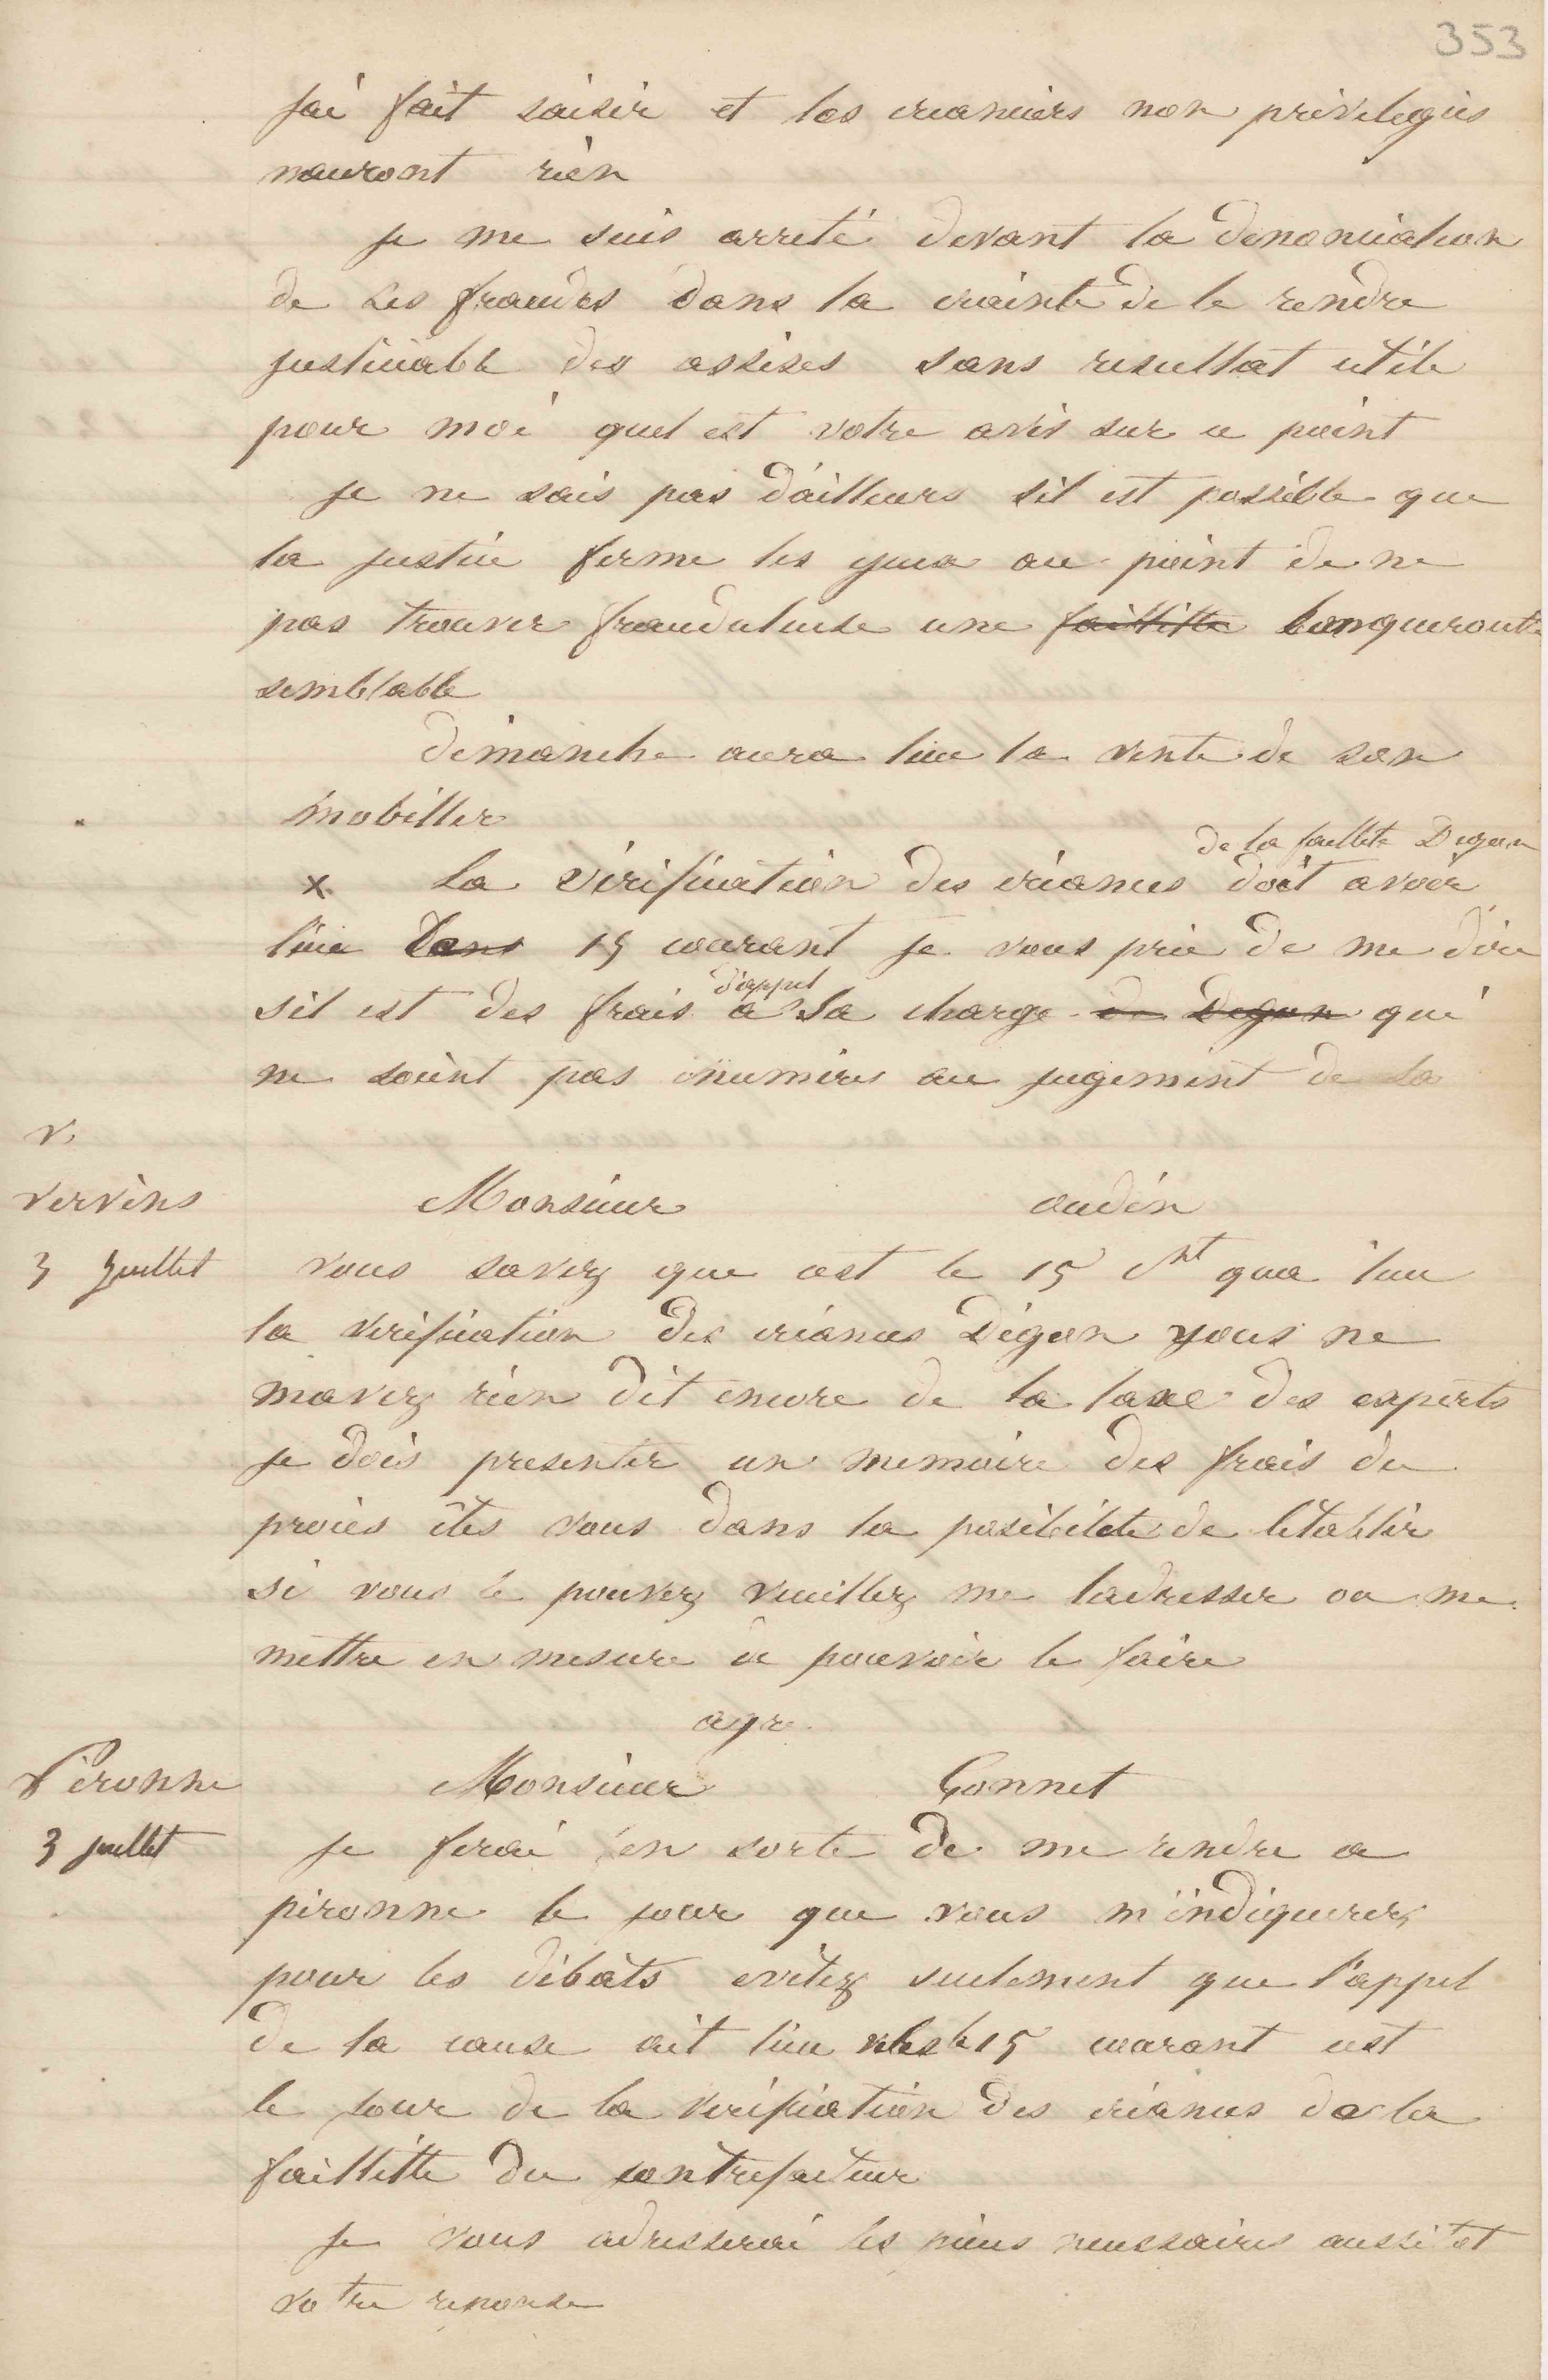 353
jai fait saisir et les creanciers non privilegiés
nauront rien
je me suis arreté devant la denonciation
de ses fraudes dans la crainte de le rendre
justiciable des assises sans resultat utile
pour moi quel est votre avis sur ce point
je ne sais pas d'ailleurs sil est possible que
la justice ferme les yeux au point de ne
pas trouver frauduleuse une faillitte banqueroute
semblable
dimanche aura lieu la vente de son
mobillier
de la faillite Degon
x La vérification des créances doit avoir
lieu dans 15 courant je vous prie de me dire
d'appel
sil est des frais à sa charge de Degon qui
ne soient pas énumérés au jugement de la
v.
Vervins
Monsieur audin
3 Juillet
vous savez que cest le 15 ct qua lieu
la verification des créances Dégon vous ne
mavez rien dit encore de la taxe des experts
je dois presenter un memoire des frais du
procès êtes vous dans la posibilité de létablir
si vous le pouvez veuillez me ladresser ou me
mettre en mesure de pouvoir le faire
agr.
Péronne
Monsieur Gonnet
3 juillet
je ferai en sorte de me rendre a
péronne le jour que vous m'indiquerez
pour les débats evitez seulement que l'appel
de la cause ait lieu le 15 courant cest
le jour de la verification des créances de la
faillitte du contrefacteur
je vous adresserai les pièces necessaires aussitot
votre reponse